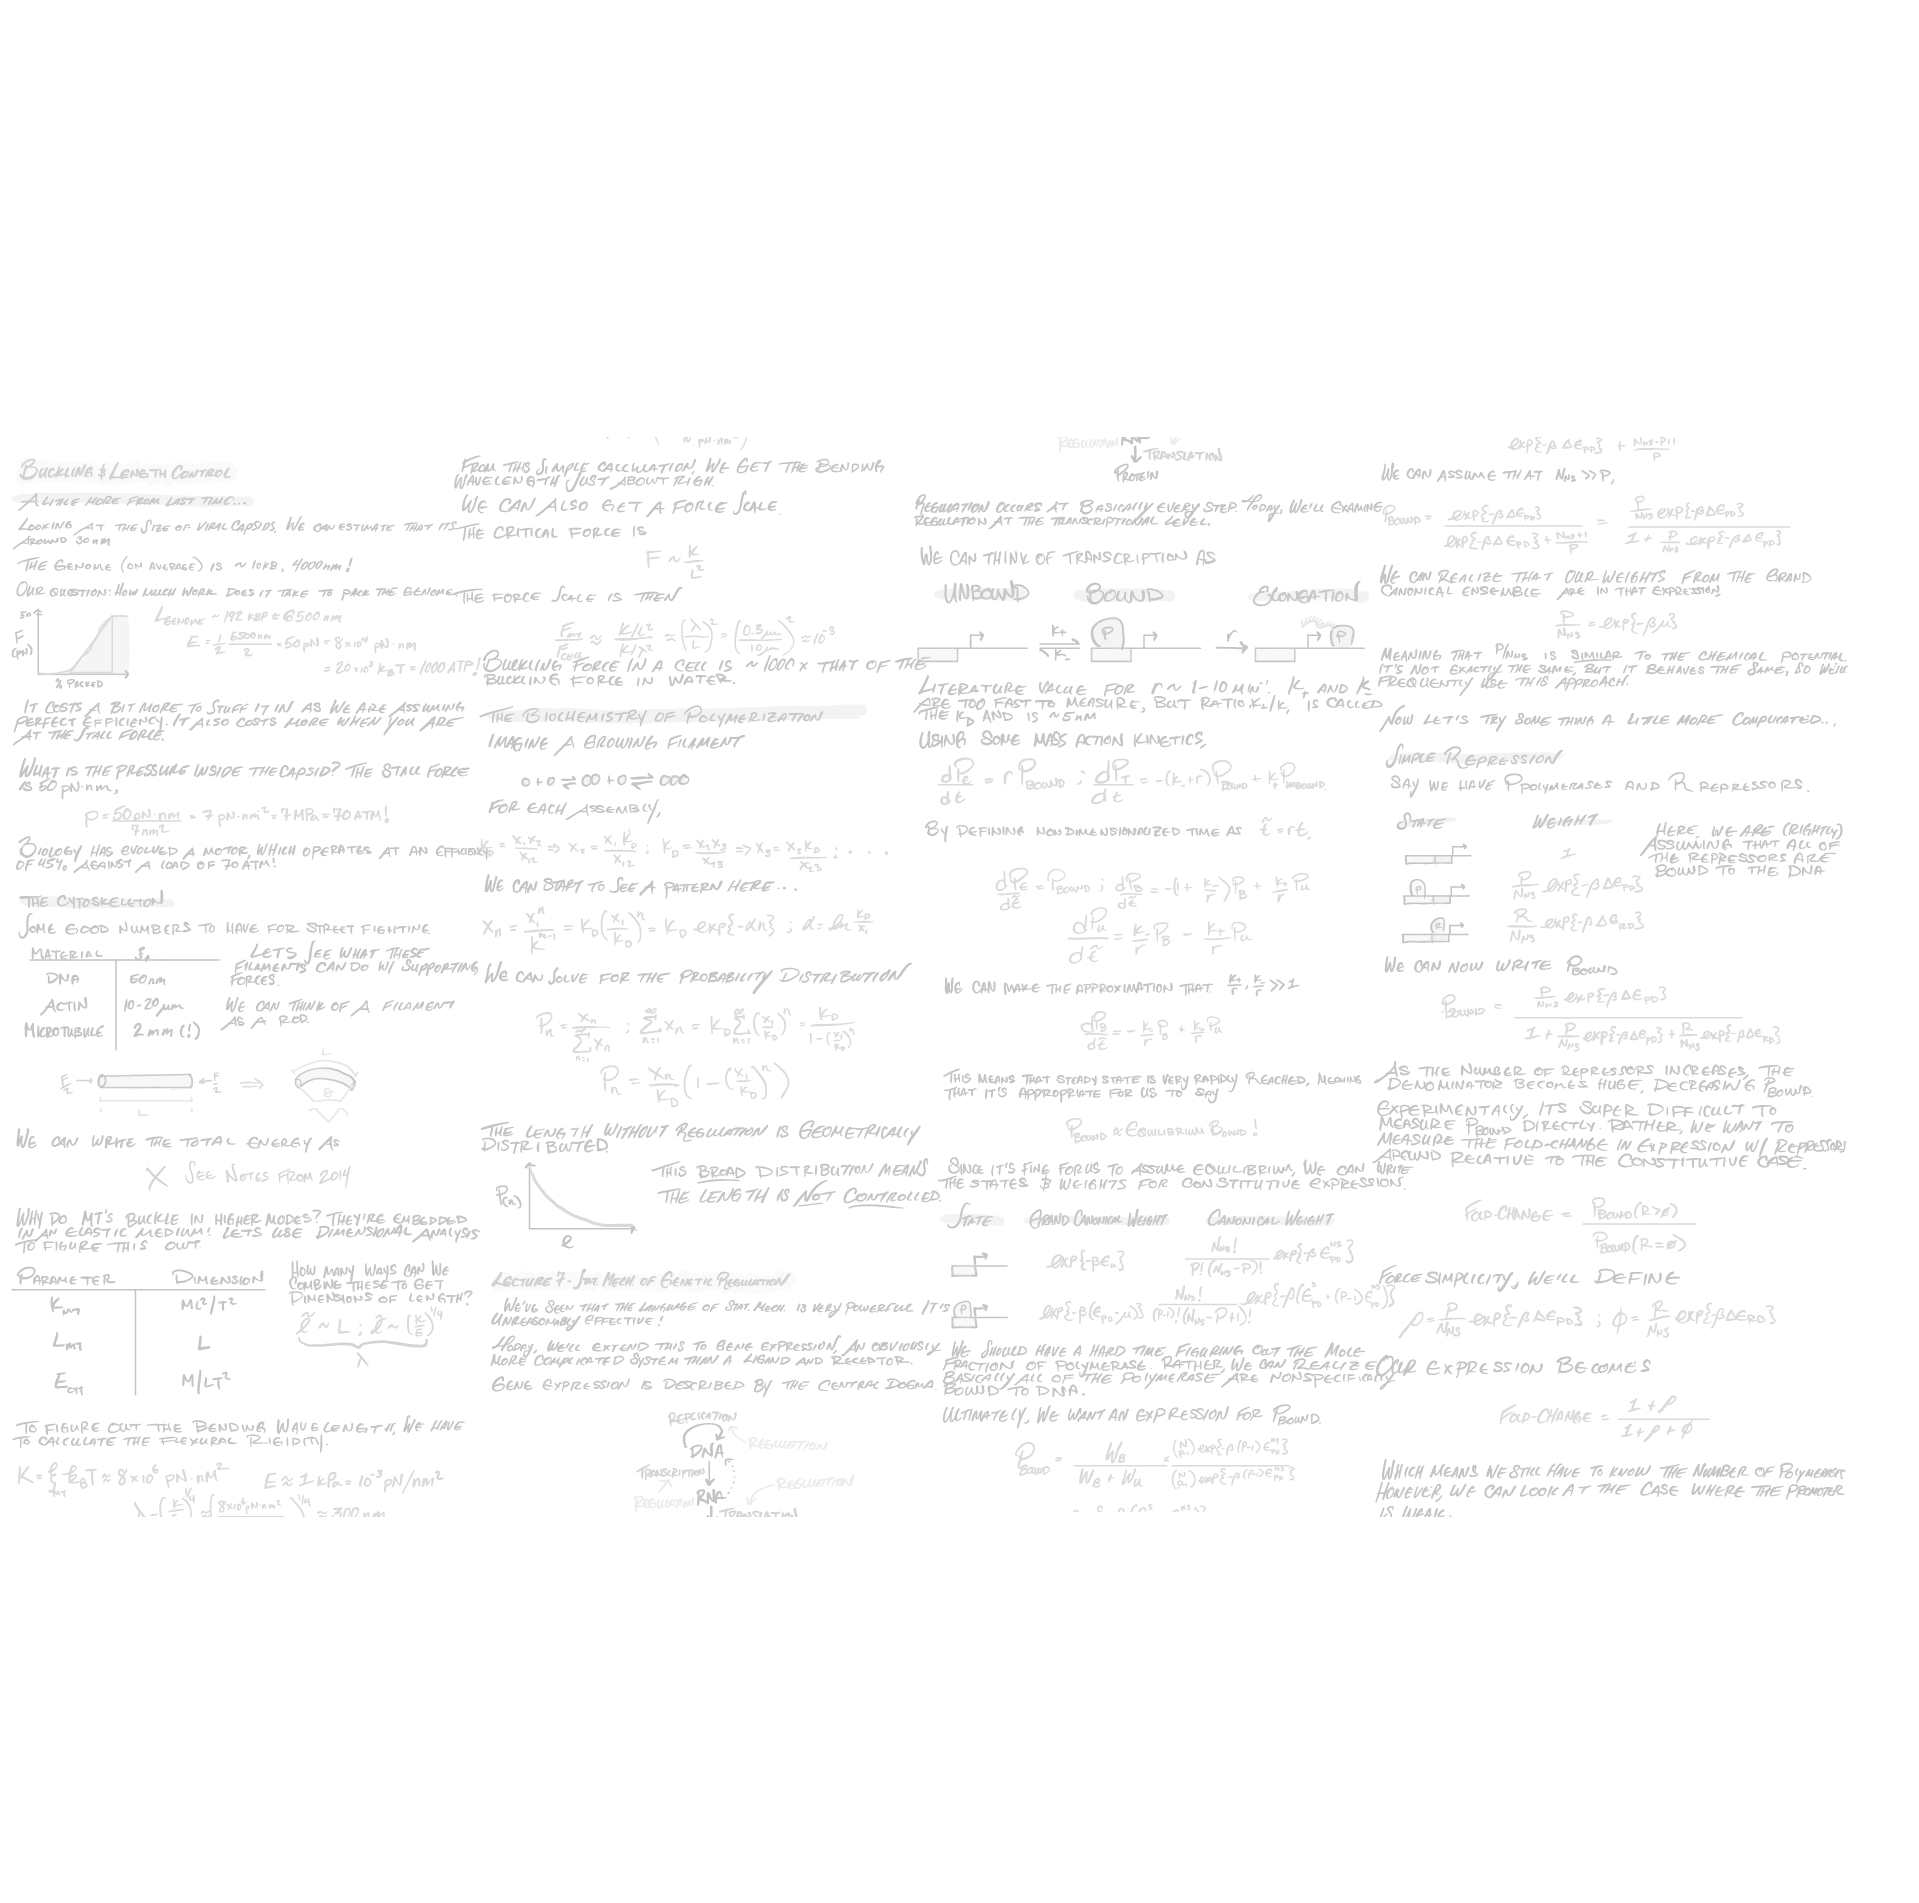 BUCKLING & LENGTH CONTROL
A LITTLE MORE FROM LAST TIME...
LOOKING AT THE SIZE OF VIRAL CAPSIDS, WE CAN ESTIMATE THAT ITS
AROUND 30nm
THE GENOME (ON AVERAGE) IS ~ 10KB, 4000nm!
OUR QUESTION: HOW MUCH WORK DOES IT TAKE TO PACK THE GENOME
50
F
(PN)
% PACKED
L GENOME ~ 192 KBP ≈ 6500 nm
E = 1/2 6500nm/2 · 50 pN = 8×10⁴ pN·nm
= 20×10³ KBT = 1000 ATP!
IT COSTS A BIT MORE TO STUFF IT IN AS WE ARE ASSUMING
PERFECT EFFICIENCY. IT ALSO COSTS MORE WHEN YOU ARE
AT THE STALL FORCE.
WHAT IS THE PRESSURE INSIDE THE CAPSID? THE STALL FORCE
IS 50 pN·nm,
P = 50pN·nm/7nm² = 7 pN·nm² = 7 MPa = 70 ATM!
BIOLOGY HAS EVOLVED A MOTOR, WHICH OPERATES AT AN EFFICIENCY
OF 45% AGAINST A LOAD OF 70 ATM!
THE CYTOSKELETON
SOME GOOD NUMBERS TO HAVE FOR STREET FIGHTING.
MATERIAL ξp
DNA 50nm
ACTIN 10-20μm
MICROTUBULE 2mm (!)
LETS SEE WHAT THESE
FILAMENTS CAN DO W/ SUPPORTING
FORCES.
WE CAN THINK OF A FILAMENT
AS A ROD.
F/2 → ← F/2 ⇒
L
L
θ
WE CAN WRITE THE TOTAL ENERGY AS
X SEE NOTES FROM 2014
WHY DO MT'S BUCKLE IN HIGHER MODES? THEY'RE EMBEDDED
IN AN ELASTIC MEDIUM! LETS USE DIMENSIONAL ANALYSIS
TO FIGURE THIS OUT.
PARAMETER DIMENSION
K MT ML³/T²
L MT L
E cyt M/LT²
HOW MANY WAYS CAN WE
COMBINE THESE TO GET
DIMENSIONS OF LENGTH?
ℓ̃ ~ L ; ℓ̃ ~ (K/E)^1/4
λ
TO FIGURE OUT THE BENDING WAVELENGTH, WE HAVE
TO CALCULATE THE FLEXURAL RIGIDITY.
K = ξ MT KBT ≈ 8×10⁶ pN·nM² E ≈ 1 kPa = 10⁻³ pN/nm²
λ ~ (K/E)^1/4 ≈ (8×10⁶pN·nm² )^1/4 ≈ 300 nm
FROM THIS SIMPLE CALCULATION, WE GET THE BENDING
WAVELENGTH JUST ABOUT RIGH.
WE CAN ALSO GET A FORCE SCALE.
THE CRITICAL FORCE IS
F ~ K/L²
THE FORCE SCALE IS THEN
F MT/F CELL ≈ K/L²/K/λ² ≈ (λ/L)² = (0.3μm/10μm)² ≈ 10⁻³
BUCKLING FORCE IN A CELL IS ~ 1000 x THAT OF THE
BUCKLING FORCE IN WATER.
THE BIOCHEMISTRY OF POLYMERIZATION
IMAGINE A GROWING FILAMENT
o + o ⇌ oo + o ⇌ ooo
FOR EACH ASSEMBLY,
KD = X₁X₂/X₁₂ ⇒ X₂ = X₁KD/X₁₂ ; KD = X₂X₃/X₂₃ ⇒ X₃ = X₂KD/X₂₃ ; ....
WE CAN START TO SEE A PATTERN HERE...
Xn = X₁ⁿ/Kⁿ⁻¹ = KD(X₁/KD)ⁿ = KD exp{-αn} ; α = ln KD/X₁
WE CAN SOLVE FOR THE PROBABILITY DISTRIBUTION
Pn = Xn/∑Xn n=1 ; ∑Xn n=1 = KD∑(X₁/KD)ⁿ n=1 = KD/1-(X₁/KD)ⁿ
Pn = Xn/KD (1 - (X₁/KD)ⁿ)
THE LENGTH WITHOUT REGULATION IS GEOMETRICALLY
DISTRIBUTED.
P(n)
ℓ
THIS BROAD DISTRIBUTION MEANS
THE LENGTH IS NOT CONTROLLED.
LECTURE 7 - STAT. MECH. OF GENETIC REGULATION
WE'VE SEEN THAT THE LANGUAGE OF STAT. MECH. IS VERY POWERFUL. IT'S
UNREASONABLY EFFECTIVE!
TODAY, WE'LL EXTEND THIS TO GENE EXPRESSION, AN OBVIOUSLY
MORE COMPLICATED SYSTEM THAN A LIGAND AND RECEPTOR.
GENE EXPRESSION IS DESCRIBED BY THE CENTRAL DOGMA.
REPLICATION
DNA
REGULATION
TRANSCRIPTION
REGULATION
REGULATION
RNA
TRANSLATION
REGULATION
TRANSLATION
PROTEIN
REGULATION OCCURS AT BASICALLY EVERY STEP. TODAY, WE'LL EXAMINE
REGULATION AT THE TRANSCRIPTIONAL LEVEL.
WE CAN THINK OF TRANSCRIPTION AS
UNBOUND BOUND ELONGATION
K+ K- P r P
LITERATURE VALUE FOR r ~ 1-10 MIN⁻¹. K+ AND K-
ARE TOO FAST TO MEASURE, BUT RATIO K-/K+ IS CALLED
THE KD AND IS ~5nM
USING SOME MASS ACTION KINETICS,
dPE/dt = r P BOUND ; dPT/dt = -(K-+r)P BOUND + K+P UNBOUND.
BY DEFINING NONDIMENSIONALIZED TIME AS t̃ = rt,
dPE/dt̃ = P BOUND ; dPB/dt̃ = -(1 + K-/r)PB + K+/r Pu
dPu/dt̃ = K-/r PB - K+/r Pu
WE CAN MAKE THE APPROXIMATION THAT K+/r, K-/r >> 1
dPB/dt̃ = - K-/r PB + K+/r Pu
THIS MEANS THAT STEADY STATE IS VERY RAPIDLY REACHED, MEANING
THAT IT'S APPROPRIATE FOR US TO SAY
P BOUND ≈ EQUILIBRIUM BOUND!
SINCE IT'S FINE FOR US TO ASSUME EQUILIBRIUM, WE CAN WRITE
THE STATES & WEIGHTS FOR CONSTITUTIVE EXPRESSION.
STATE GRAND CANONICAL WEIGHT CANONICAL WEIGHT
exp{-βεu} NNS!/P!(NNS-P)! exp{-β ε PD NS}
P exp{-β(εPD-μ)} NNS!/(P-1)!(NNS-P+1)! exp{-β(ε PD S + (P-1)ε PD NS)}
WE SHOULD HAVE A HARD TIME FIGURING OUT THE MOLE
FRACTION OF POLYMERASE. RATHER, WE CAN REALIZE
BASICALLY ALL OF THE POLYMERASE ARE NONSPECIFICALLY
BOUND TO DNA.
ULTIMATELY, WE WANT AN EXPRESSION FOR P BOUND.
P BOUND = WB/WB + Wu × (N P-1) exp{-β(P-1)ε PD NS}/(N P-1) exp{-β(P-1)ε PD NS}
exp{-βΔεPD} + NNS-P+1/P
WE CAN ASSUME THAT NNS >> P,
P BOUND = exp{-βΔεPD}/exp{-βΔεPD} + NNS+1/P = P/NNS exp{-βΔεPD}/1 + P/NNS exp{-βΔεPD}
WE CAN REALIZE THAT OUR WEIGHTS FROM THE GRAND
CANONICAL ENSEMBLE ARE IN THAT EXPRESSION!
P/NNS = exp{-βμ}
MEANING THAT P/NNS IS SIMILAR TO THE CHEMICAL POTENTIAL.
IT'S NOT EXACTLY THE SAME, BUT IT BEHAVES THE SAME, SO WE'LL
FREQUENTLY USE THIS APPROACH.
NOW LET'S TRY SOME THING A LITTLE MORE COMPLICATED...
SIMPLE REPRESSION
SAY WE HAVE P POLYMERASES AND R REPRESSORS.
STATE WEIGHT
1
P P/NNS exp{-βΔεPD}
R R/NNS exp{-βΔεRD}
HERE, WE ARE (RIGHTLY)
ASSUMING THAT ALL OF
THE REPRESSORS ARE
BOUND TO THE DNA
WE CAN NOW WRITE P BOUND
P BOUND = P/NNS exp{-βΔεPD}/1 + P/NNS exp{-βΔεPD} + R/NNS exp{-βΔεRD}
AS THE NUMBER OF REPRESSORS INCREASES, THE
DENOMINATOR BECOMES HUGE, DECREASING P BOUND.
EXPERIMENTALLY, ITS SUPER DIFFICULT TO
MEASURE P BOUND DIRECTLY. RATHER, WE WANT TO
MEASURE THE FOLD-CHANGE IN EXPRESSION W/ REPRESSORS
AROUND RELATIVE TO THE CONSTITUTIVE CASE.
FOLD-CHANGE = P BOUND(R>0)/P BOUND(R=0)
FORCE SIMPLICITY, WE'LL DEFINE
ρ = P/NNS exp{-βΔεPD} ; ϕ = R/NNS exp{-βΔεRD}
OUR EXPRESSION BECOMES
FOLD-CHANGE = 1+ρ/1+ρ+ϕ
WHICH MEANS WE STILL HAVE TO KNOW THE NUMBER OF POLYMERASES
HOWEVER, WE CAN LOOK AT THE CASE WHERE THE PROMOTER
IS WEAK.